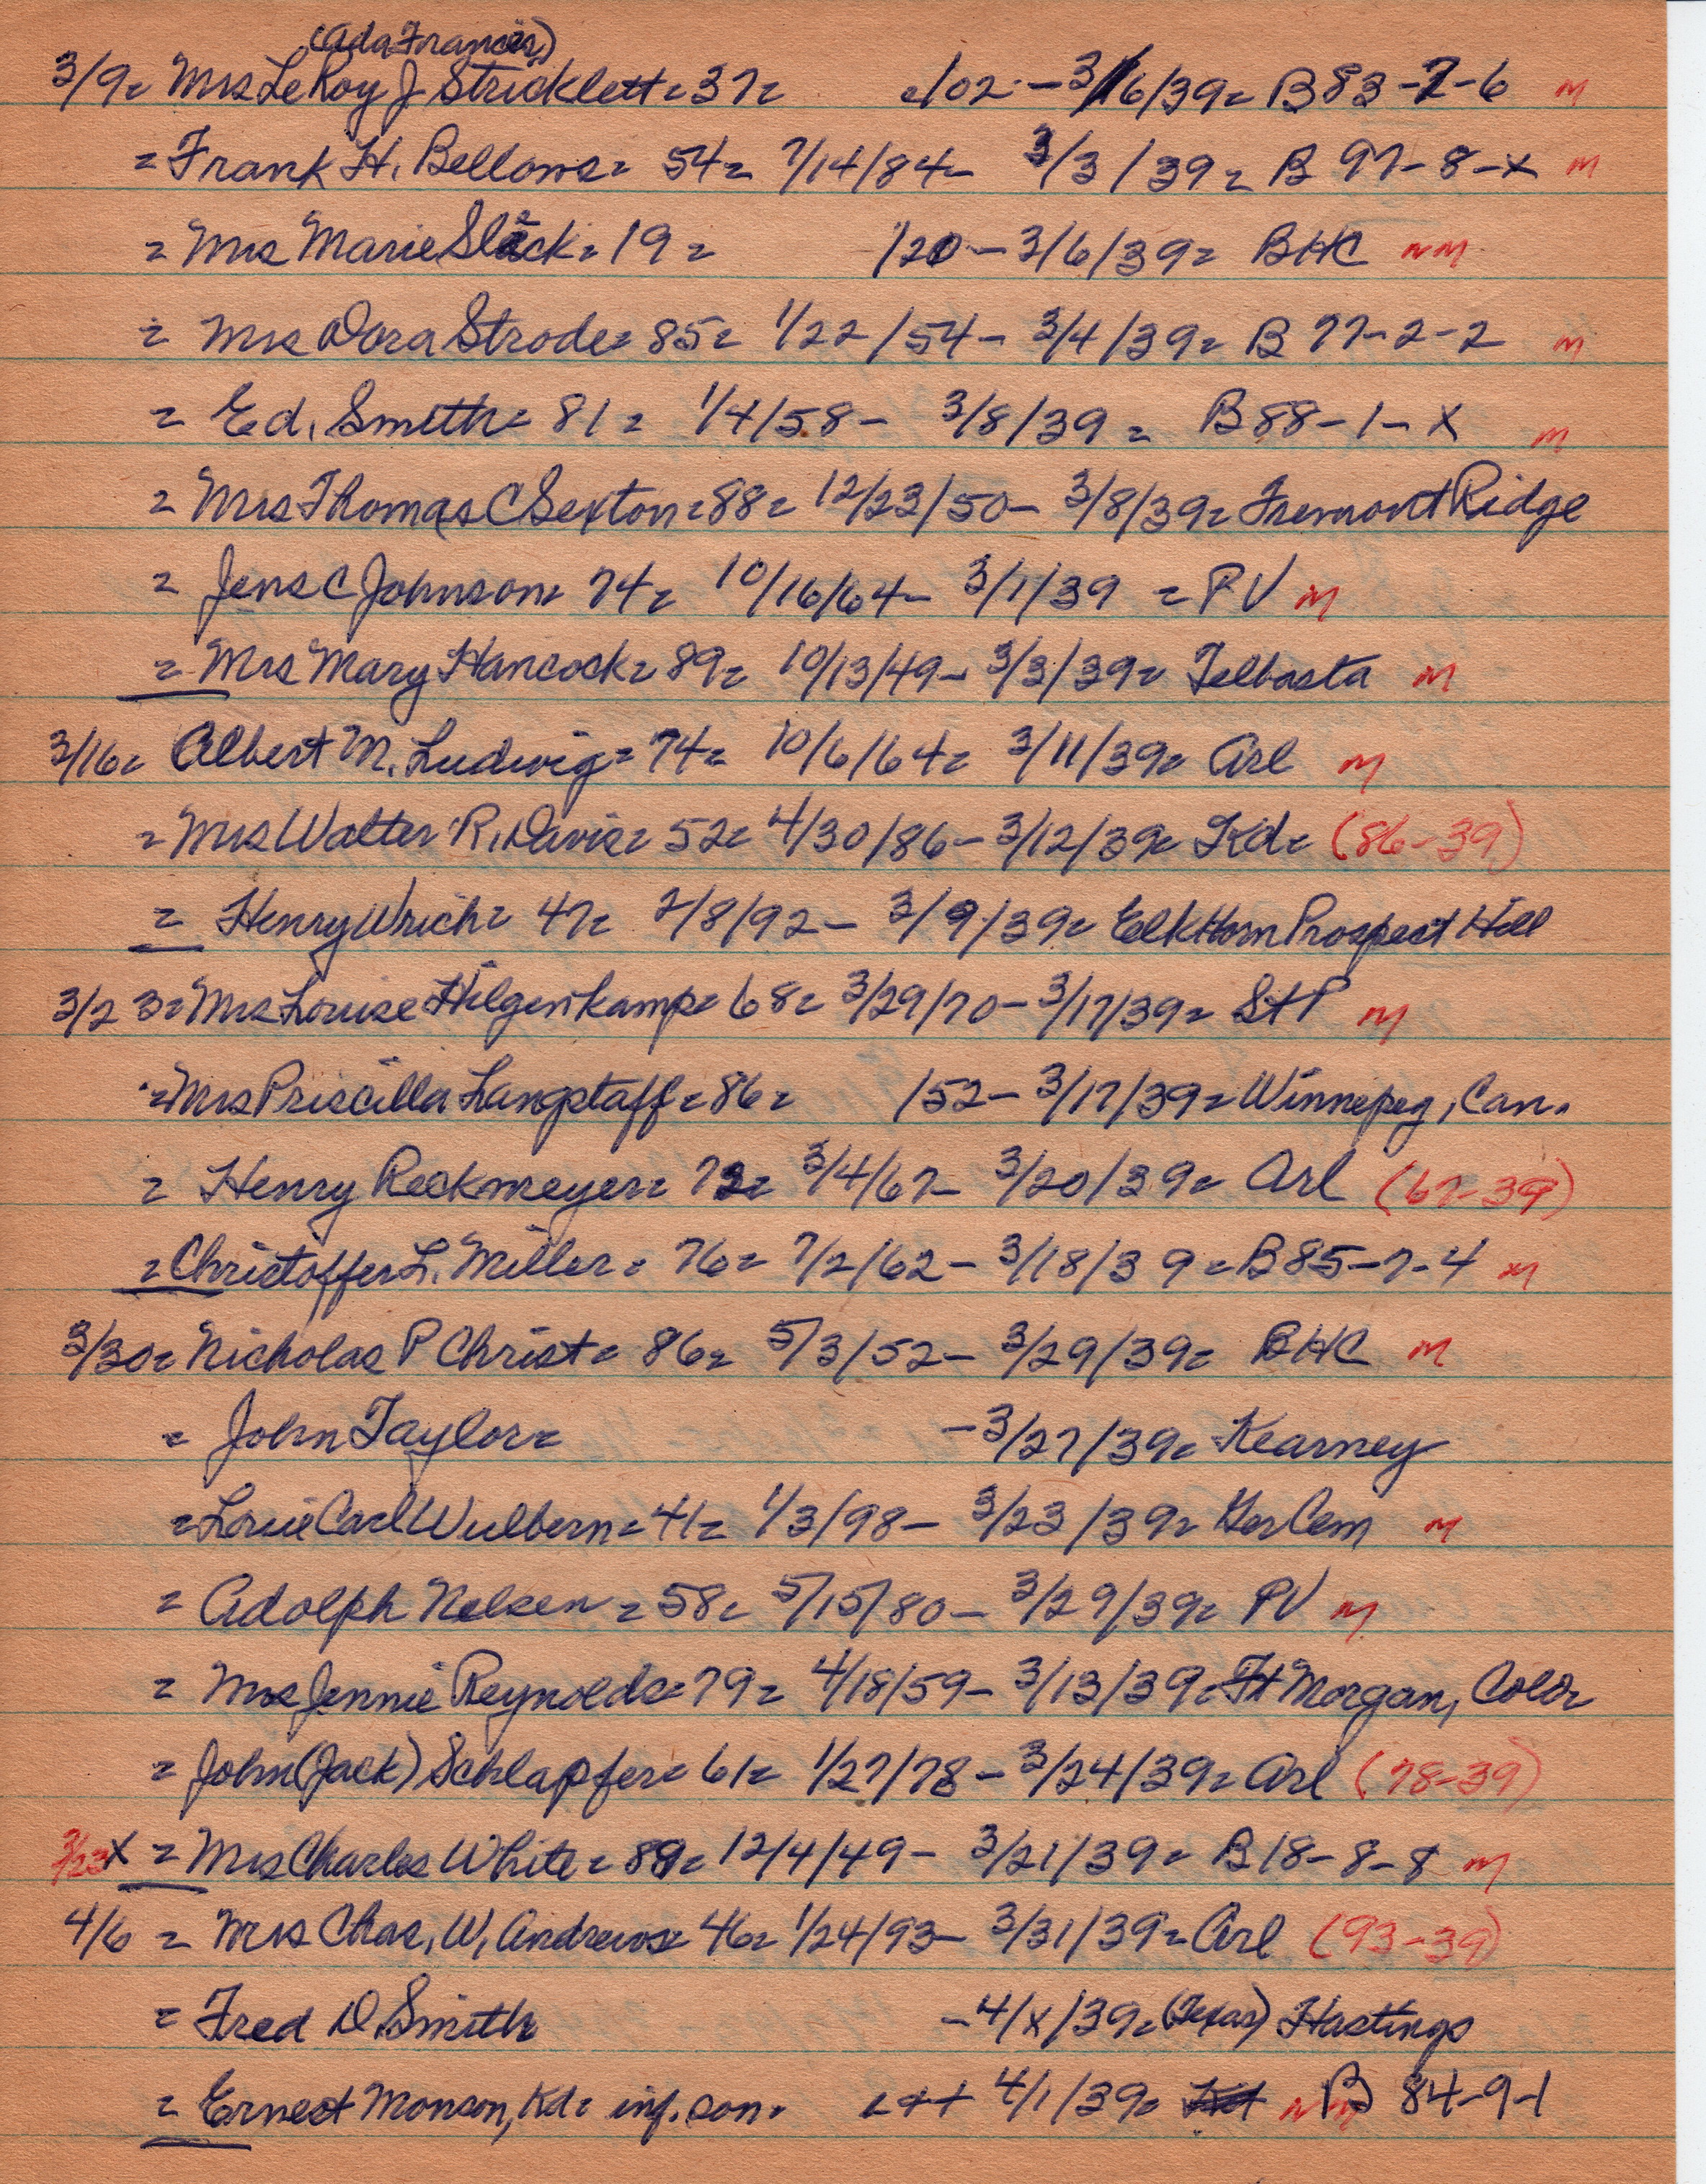 (Ada Frances)
3/9= Mrs LeRoy J Stricklett = 37= /02 - 3/6/39= B 83-7-6 m
= Frank H. Bellows= 54= 7/14/84- 3/3/39= B 97-8-x m
= Mrs Marie Slack= 19= /20- 3/6/39= BHC nm
= Mrs Dora Strode= 85= 1/22/54- 3/4/39= B 77-2-2 m
= Ed. Smith= 81= 1/4/58- 3/8/39= B88-1-X m
= Mrs Thomas C Sexton=88= 12/23/50- 3/8/39= Fremont Ridge
= Jens C Johnson= 74= 10/16/64- 3/1/39 = PV m
= Mrs Mary Hancock= 89= 10/13/49- 3/3/39= Telbasta m
3/16= Albert M. Ludwig= 74= 10/6/64= 3/11/39= Arl m
= Mrs Walter R. Davis= 52= 4/30/86- 3/12/39= Kd= (86-39)
= Henry Wrich= 47= 2/8/92- 3/9/39= Elk Horn Prospect Hill
3/23= Mrs Louise Hilgenkamp= 68= 3/29/70- 3/17/39= St P m
= Mrs Priscilla Langstaff=86= /52- 3/17/39= Winnepeg, Can.
= Henry Reckmeyer= 72= 3/4/67- 3/20/39= Arl (67-39)
= Christoffer L. Miller= 76= 7/2/62- 3/18/39=B85-7-4 m
3/30= Nicholas P Christ= 86= 5/3/52- 3/29/39= BHC m
= John Taylor= -3/27/39= Kearney
= Louie Carl Wulbern=41= 1/3/98- 3/23/39= Ger Cem m
= Adolph Nelsen =58= 5/15/80- 3/29/39= PV m
= Mrs Jennie Reynolds=79= 4/18/59- 3/13/39= Ft Morgan, Color
= John (Jack) Schlapfer= 61= 1/27/78- 3/24/39= Arl (78-39)
3/23 X = Mrs Charles White= 89= 12/4/49- 3/21/39= B 18-8-8 m
4/6 = Mrs Chas. W. Andrews= 46= 1/24/93- 3/31/39= Arl (93-39)
= Fred D. Smith -4/x/39= (Texas) Hastings
= Ernest Monson, Kd= inf. son= 4/1/39= nm B 84-9-1